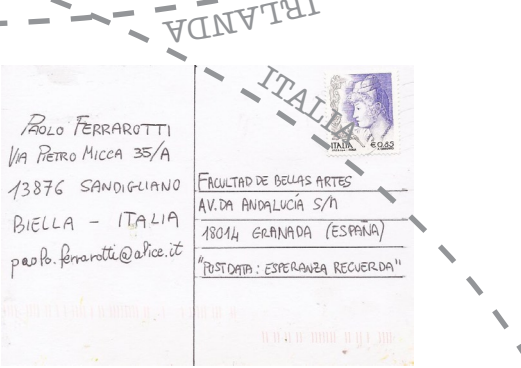 IRLANDA
ITALIA
PAOLO FERRAROTTI
VIA PIETRO MICCA 35/A
13876 SANDIGLIANO
BIELLA - ITALIA
paolo.ferrarotti@alice.it
ITALIA €0,65
FACULTAD DE BELLAS ARTES
AV. DA ANDALUCÍA S/n
18014 GRANADA (ESPAÑA)
"POSTDATA: ESPERANZA RECUERDA"